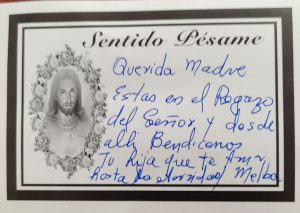 Sentido Pésame
Querida Madre
Estas en el Regazo
del Señor y desde
alli Bendicenos
Tu hija que te Ama
hasta la eternidad Melba